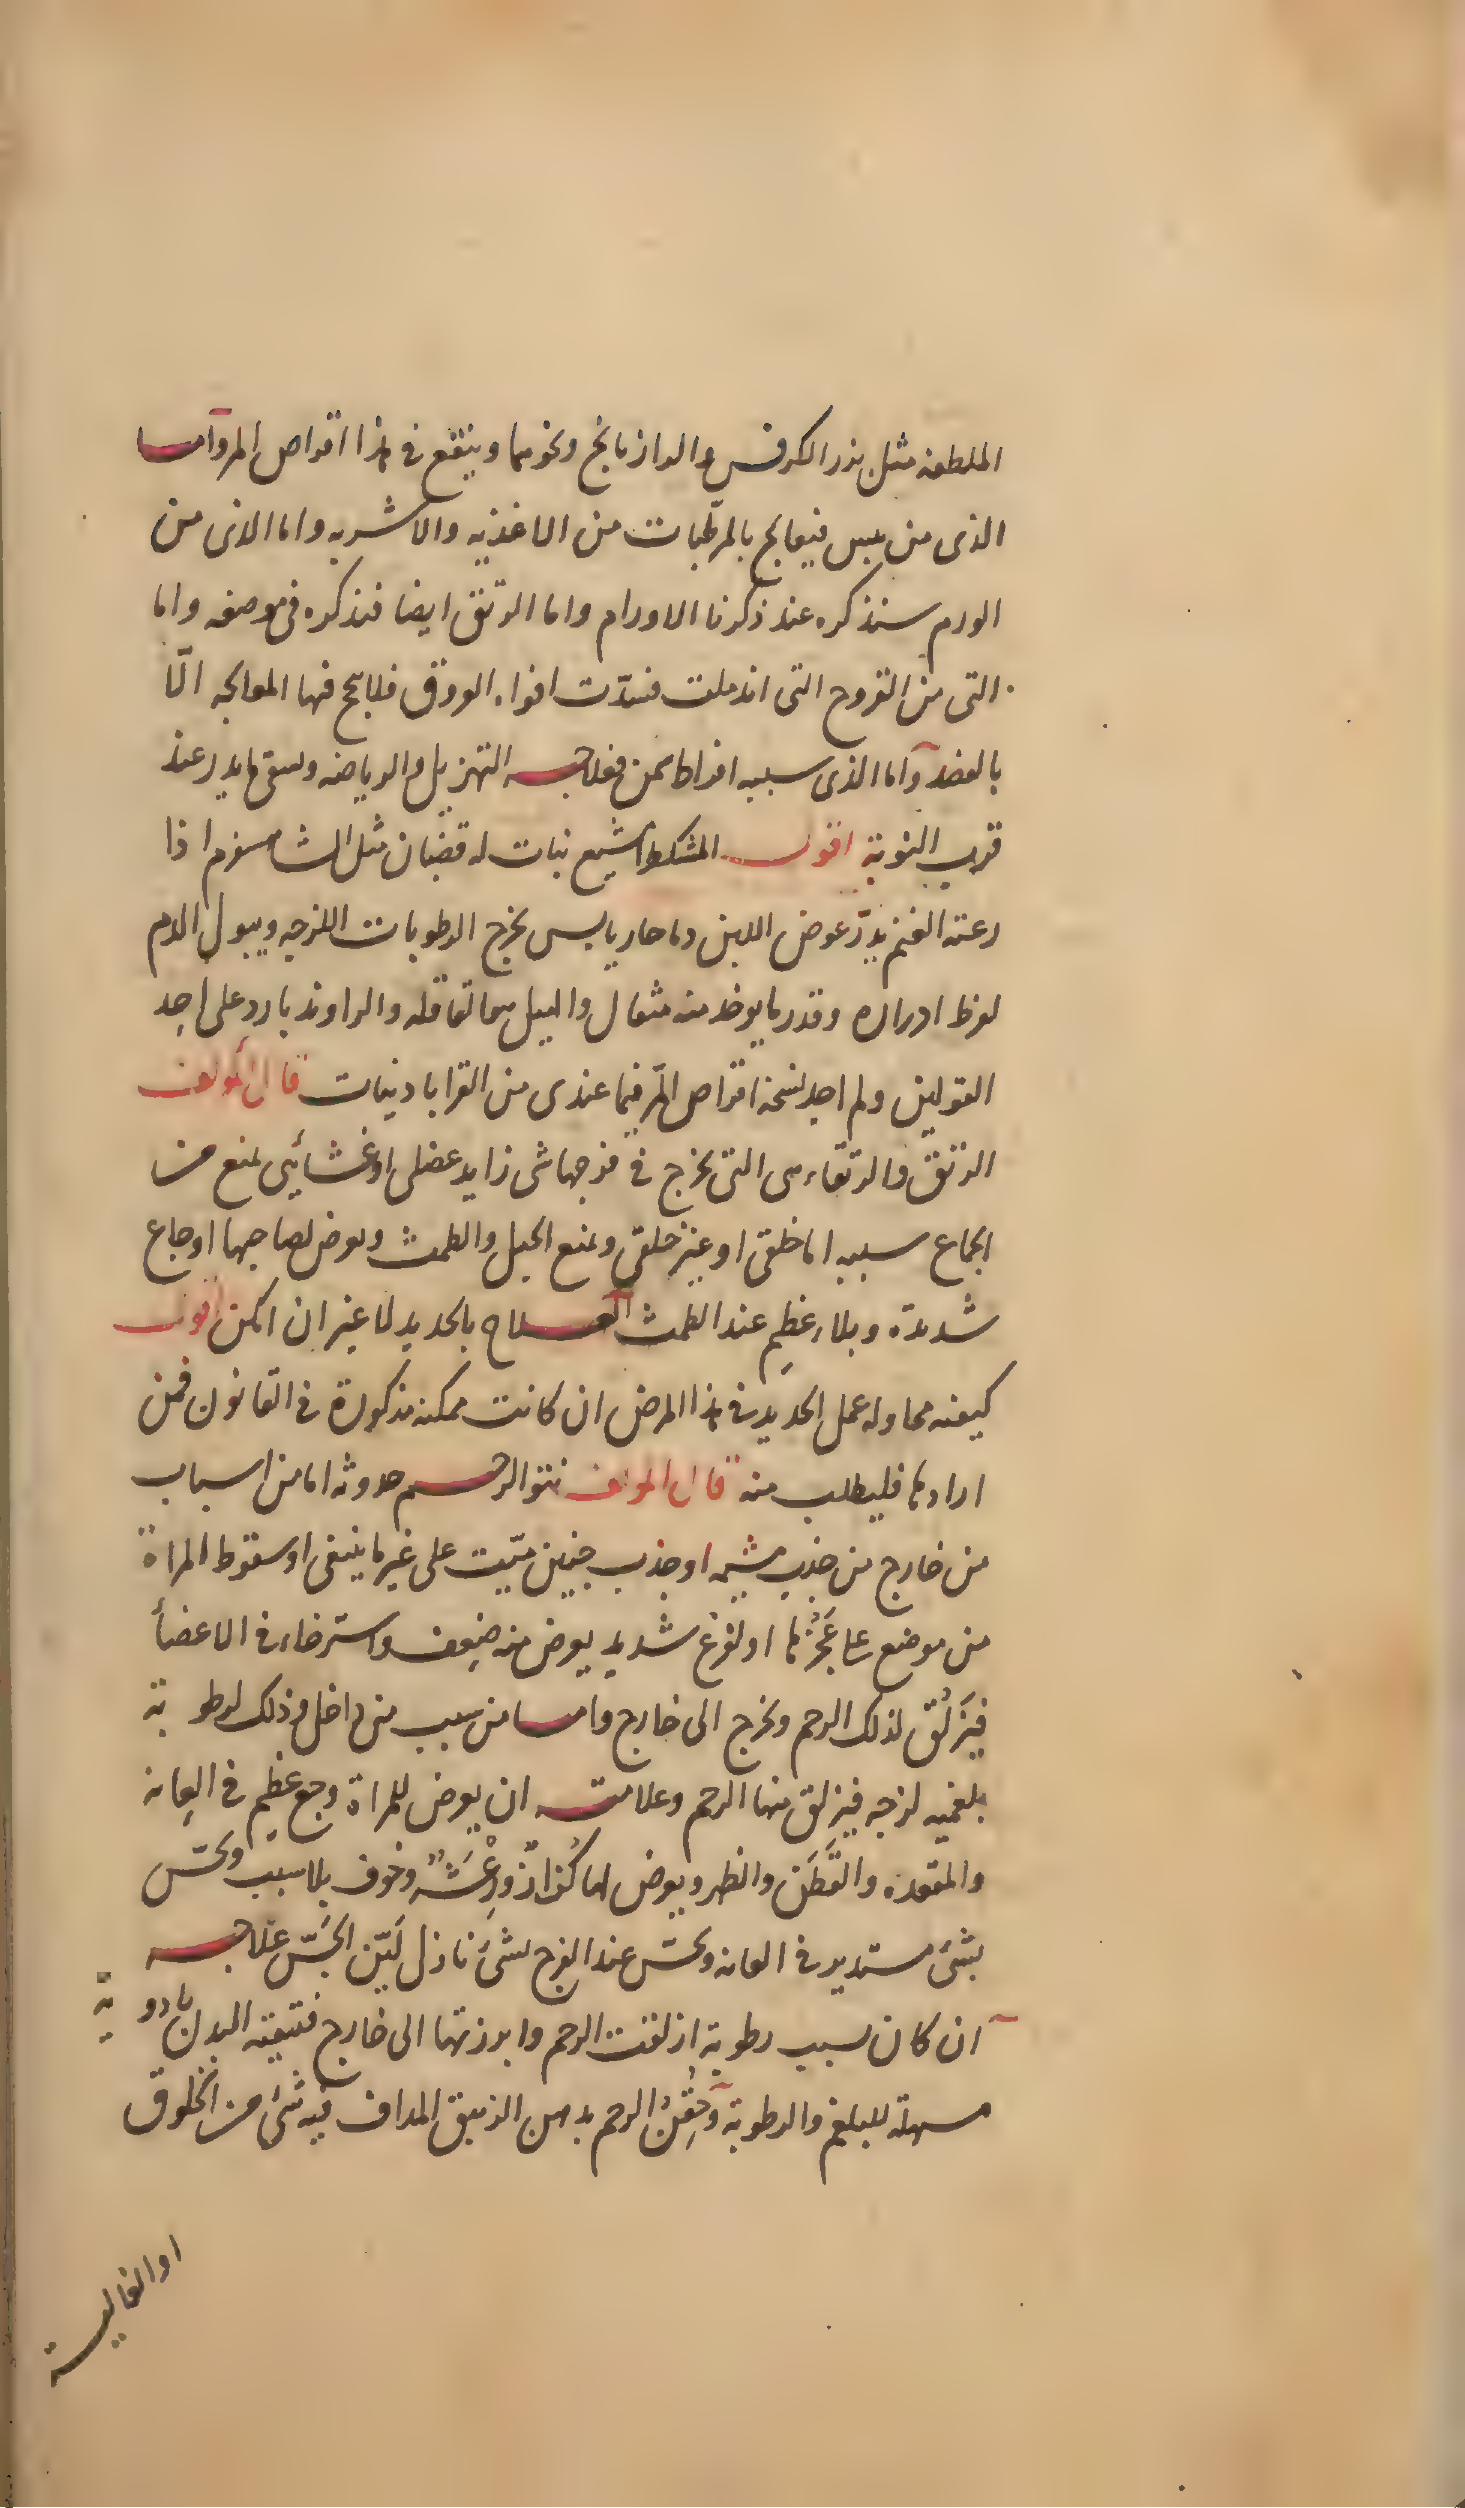 الملطفه مثل بزر الكرفس والرازيانج ونحوهما وينفع فى هذا اقراص المر واما
الذى من يبس فيعالج بالمرطبات من الاغذيه والاشربه واما الذى من
الورم سنذكره عند ذكرنا الاورام واما الرتق ايضا فنذكره فى موضعه واما
التى من القروح التى اندملت فسدّت افواه العروق فلا ينجح فيها المعالجه الّا
بالفصد واما الذى سببه افراط سمن فعلاجه التهزيل والرياضه وسقى ما يدر عند
قرب النوبة اقول المشكطرامشيع نبات له قضبان مثل الشاهسفرم اذا
رعته الغنم يدرّ عوض اللبن دما حار يابس يخرج الرطوبات اللزجه ويبول الدم
لفرط ادراره وقدر ما يوخذ منه مثقال والهيل هما لقاقله والراوند بارد على احد
القولين ولم اجد نسخة اقراص المر فيما عندى من القراباذينات قال المؤلف
الرتق والرتقاء هى التى يخرج فى فرجها شى زايد عضلى او غشائىّ يمنع من
الجماع سببه اما خلقى او غير خلقى ويمنع الحبل والطمث ويعرض لصاحبها اوجاع
شديدة وبلاء عظيم عند الطمث العلاج بالحديد لا غير ان امكن اقول
كيفيه محاوله عمل الحديد فى هذا المرض ان كانت ممكنه مذكورة فى القانون فمن
ارادها فليطلب منه قال المولف نتو الرحم حدوثه اما من اسباب
من خارج من جذب مشيمه او جذب جنين ميّت على غير ما ينبغى او سقوط المراة
من موضع على عَجُزها او لفزع شديد يعرض منه ضعف واسترخاء فى الاعضأ
فيَزلُق لذلك الرحم ويخرج الى خارج واما من سبب من داخل وذلك لرطوبة
بلغميه لزجه فيزلق منها الرحم وعلامته ان يعرض للمراة وجع عظيم فى العانه
والمقعده والقَطَن والظهر ويعرض لها كُزازٌ ورِعْشَةٌ وخوف بلا سبب ويحسّ
بشئ مستدير فى العانه ويحسّ عند الفرج بشئ نازل لَيّن المجَسّ علاجه
ان كان سبب رطوبة ازلقت الرحم وابرزتها الى خارج فتنقيه البدن بادوية
مسهلة للبلغم والرطوبة وحُقِنُ الرحم بدهن الزنبق المداف فيه شئ من الخلوق
او الغالية